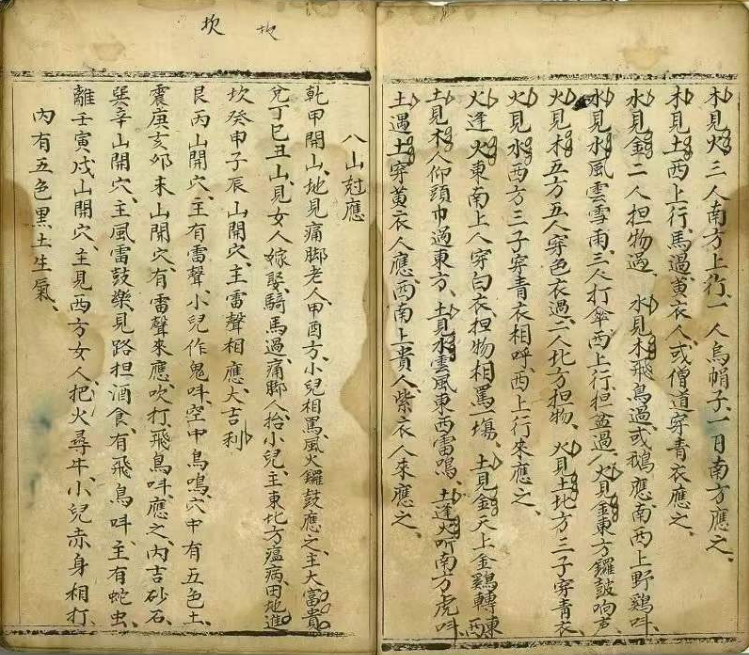 木見火三人南方上行一人烏帽子一日南方應之
木見土西上行馬過黃衣人或僧道穿青衣應之
水見金二人担物過 水見木飛鳥過或鵝應南西上野鷄呌
水見水風雲雪雨三人打傘西上行担盆過火見金東方鑼鼓响声
火見木五方五人穿色衣過二人北方担物火見土北方三子穿青衣
火見水西方三子穿青衣相呼西上行來應之
火逢火東南上人穿白衣担物相罵一塲土見金天上金鷄轉東西
土見木人仰頭巾過東方土見水雲風東西雷鳴土逢火听南方虎呌
土遇土穿黃衣人應西南上貴人紫衣人來應之
坎 地
八山尅應
乾甲開山地見痛脚老人甲酉方小兒相罵風火鑼鼓應之主大富貴
兌丁巳丑山見女人嫁娶騎馬過痛脚人抬小兒主東北方瘟病田地進
坎癸申子辰山開穴主雷聲相應大吉利
艮丙山開穴主有雷聲小兒作鬼呌空中鳥鳴穴中有五色土
震庚亥卯未山開穴有雷聲來應吹打飛鳥呌應之內吉砂石
巽辛山開穴主風雷鼓樂見路担酒食有飛鳥呌主有蛇虫
離壬寅戍山開穴主見西方女人把火尋牛小兒赤身相打
內有五色黑土生氣